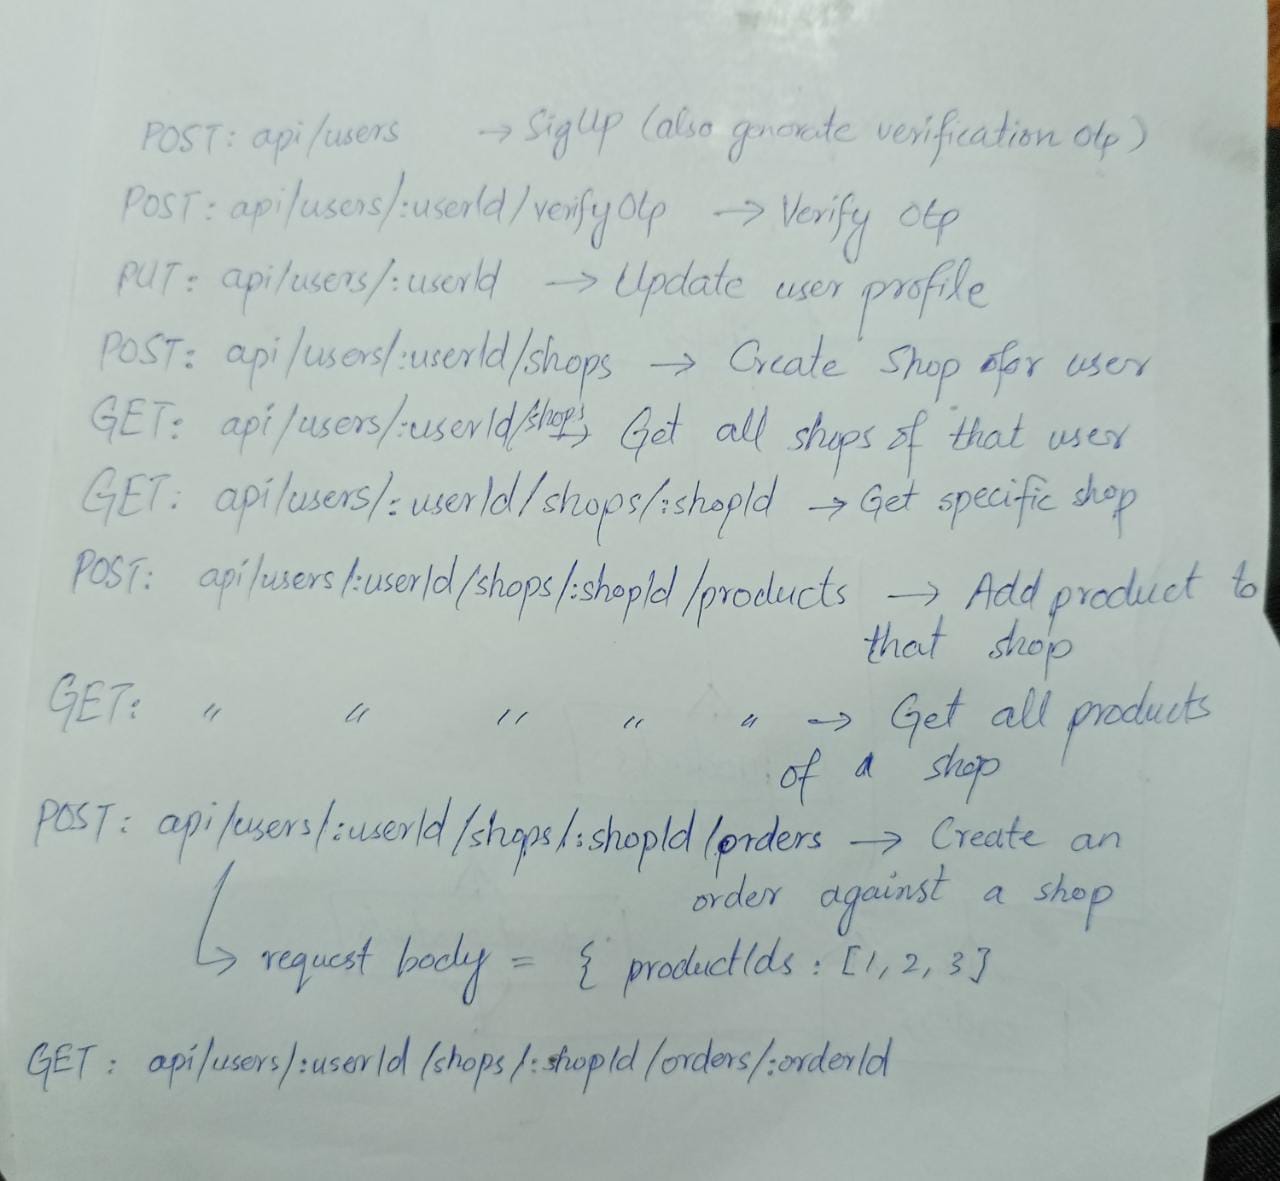 POST: api/users → SigUp (also generate verification otp)
POST: api/users/:userId/verifyOtp → Verify otp
PUT: api/users/:userId → Update user profile
POST: api/users/:userId/shops → Create Shop for user
GET: api/users/:userId/shops → Get all shops of that user
GET: api/users/:userId/shops/:shopId → Get specific shop
POST: api/users/:userId/shops/:shopId/products → Add product to
that shop
GET: " " " " " → Get all products
of a shop
POST: api/users/:userId/shops/:shopId/orders → Create an
order against a shop
↳ request body = { productIds : [1, 2, 3]
GET: api/users/:userId/shops/:shopId/orders/:orderId